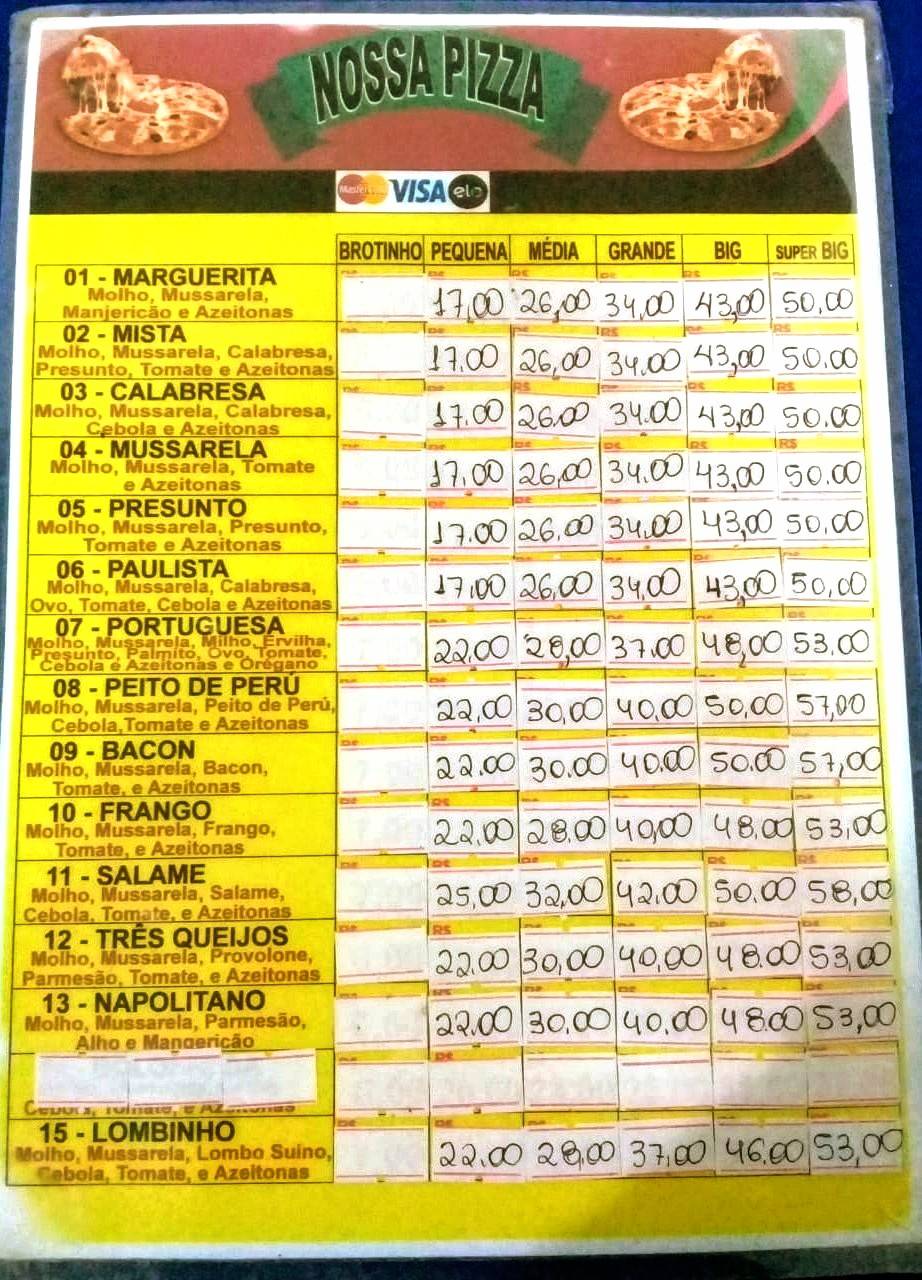 NOSSA PIZZA
MasterCard VISA elo
BROTINHO PEQUENA MÉDIA GRANDE BIG SUPER BIG
01 - MARGUERITA
Molho, Mussarela,
Manjericão e Azeitonas
17,00 26,00 34,00 43,00 50,00
02 - MISTA
Molho, Mussarela, Calabresa,
Presunto, Tomate e Azeitonas
17.00 26,00 34.00 43,00 50.00
03 - CALABRESA
Molho, Mussarela, Calabresa,
Cebola e Azeitonas
17.00 26.00 34.00 43,00 50.00
04 - MUSSARELA
Molho, Mussarela, Tomate
e Azeitonas
17,00 26,00 34.00 43,00 50.00
05 - PRESUNTO
Molho, Mussarela, Presunto,
Tomate e Azeitonas
17.00 26,00 34.00 43,00 50,00
06 - PAULISTA
Molho, Mussarela, Calabresa,
Ovo, Tomate, Cebola e Azeitonas
17,00 26,00 34,00 43,00 50,00
07 - PORTUGUESA
Molho, Mussarela, Milho, Ervilha,
Presunto, Palmito, Ovo, Tomate,
Cebola e Azeitonas e Orégano
22,00 28,00 37.00 48,00 53,00
08 - PEITO DE PERÚ
Molho, Mussarela, Peito de Perú,
Cebola,Tomate e Azeitonas
22,00 30,00 40.00 50,00 57,00
09 - BACON
Molho, Mussarela, Bacon,
Tomate, e Azeitonas
22.00 30.00 40.00 50.00 57,00
10 - FRANGO
Molho, Mussarela, Frango,
Tomate, e Azeitonas
22,00 28.00 40,00 48.00 53,00
11 - SALAME
Molho, Mussarela, Salame,
Cebola, Tomate, e Azeitonas
25,00 32,00 42.00 50.00 58,00
12 - TRÊS QUEIJOS
Molho, Mussarela, Provolone,
Parmesão, Tomate, e Azeitonas
22.00 30,00 40,00 48.00 53,00
13 - NAPOLITANO
Molho, Mussarela, Parmesão,
Alho e Mangericão
22.00 30.00 40.00 48.00 53,00
15 - LOMBINHO
Molho, Mussarela, Lombo Suíno,
Cebola, Tomate, e Azeitonas
22.00 28,00 37,00 46.00 53,00